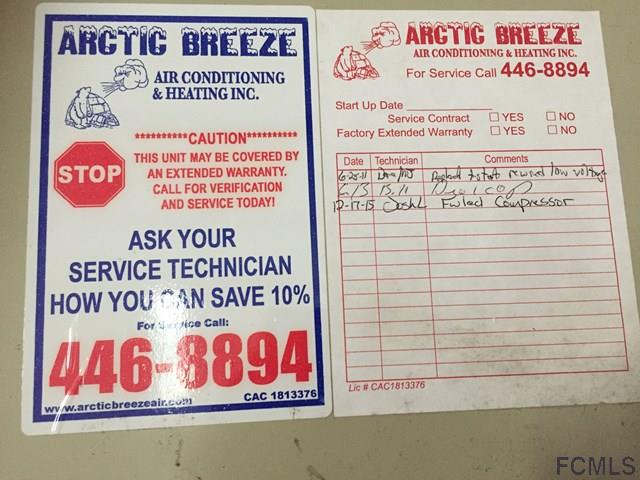 ARCTIC BREEZE
AIR CONDITIONING
& HEATING INC.
**********CAUTION**********
STOP
THIS UNIT MAY BE COVERED BY
AN EXTENDED WARRANTY.
CALL FOR VERIFICATION
AND SERVICE TODAY!
ASK YOUR
SERVICE TECHNICIAN
HOW YOU CAN SAVE 10%
For Service Call:
446-8894
CAC 1813376
www.arcticbreezeair.com
ARCTIC BREEZE
AIR CONDITIONING & HEATING INC.
For Service Call 446-8894
Start Up Date
Service Contract YES NO
Factory Extended Warranty YES NO
Date Technician Comments
6-28-11 t-stat rewired low voltage
6/3 Bill
12-17-15 Josh L Failed Compressor
Lic # CAC1813376
FCMLS